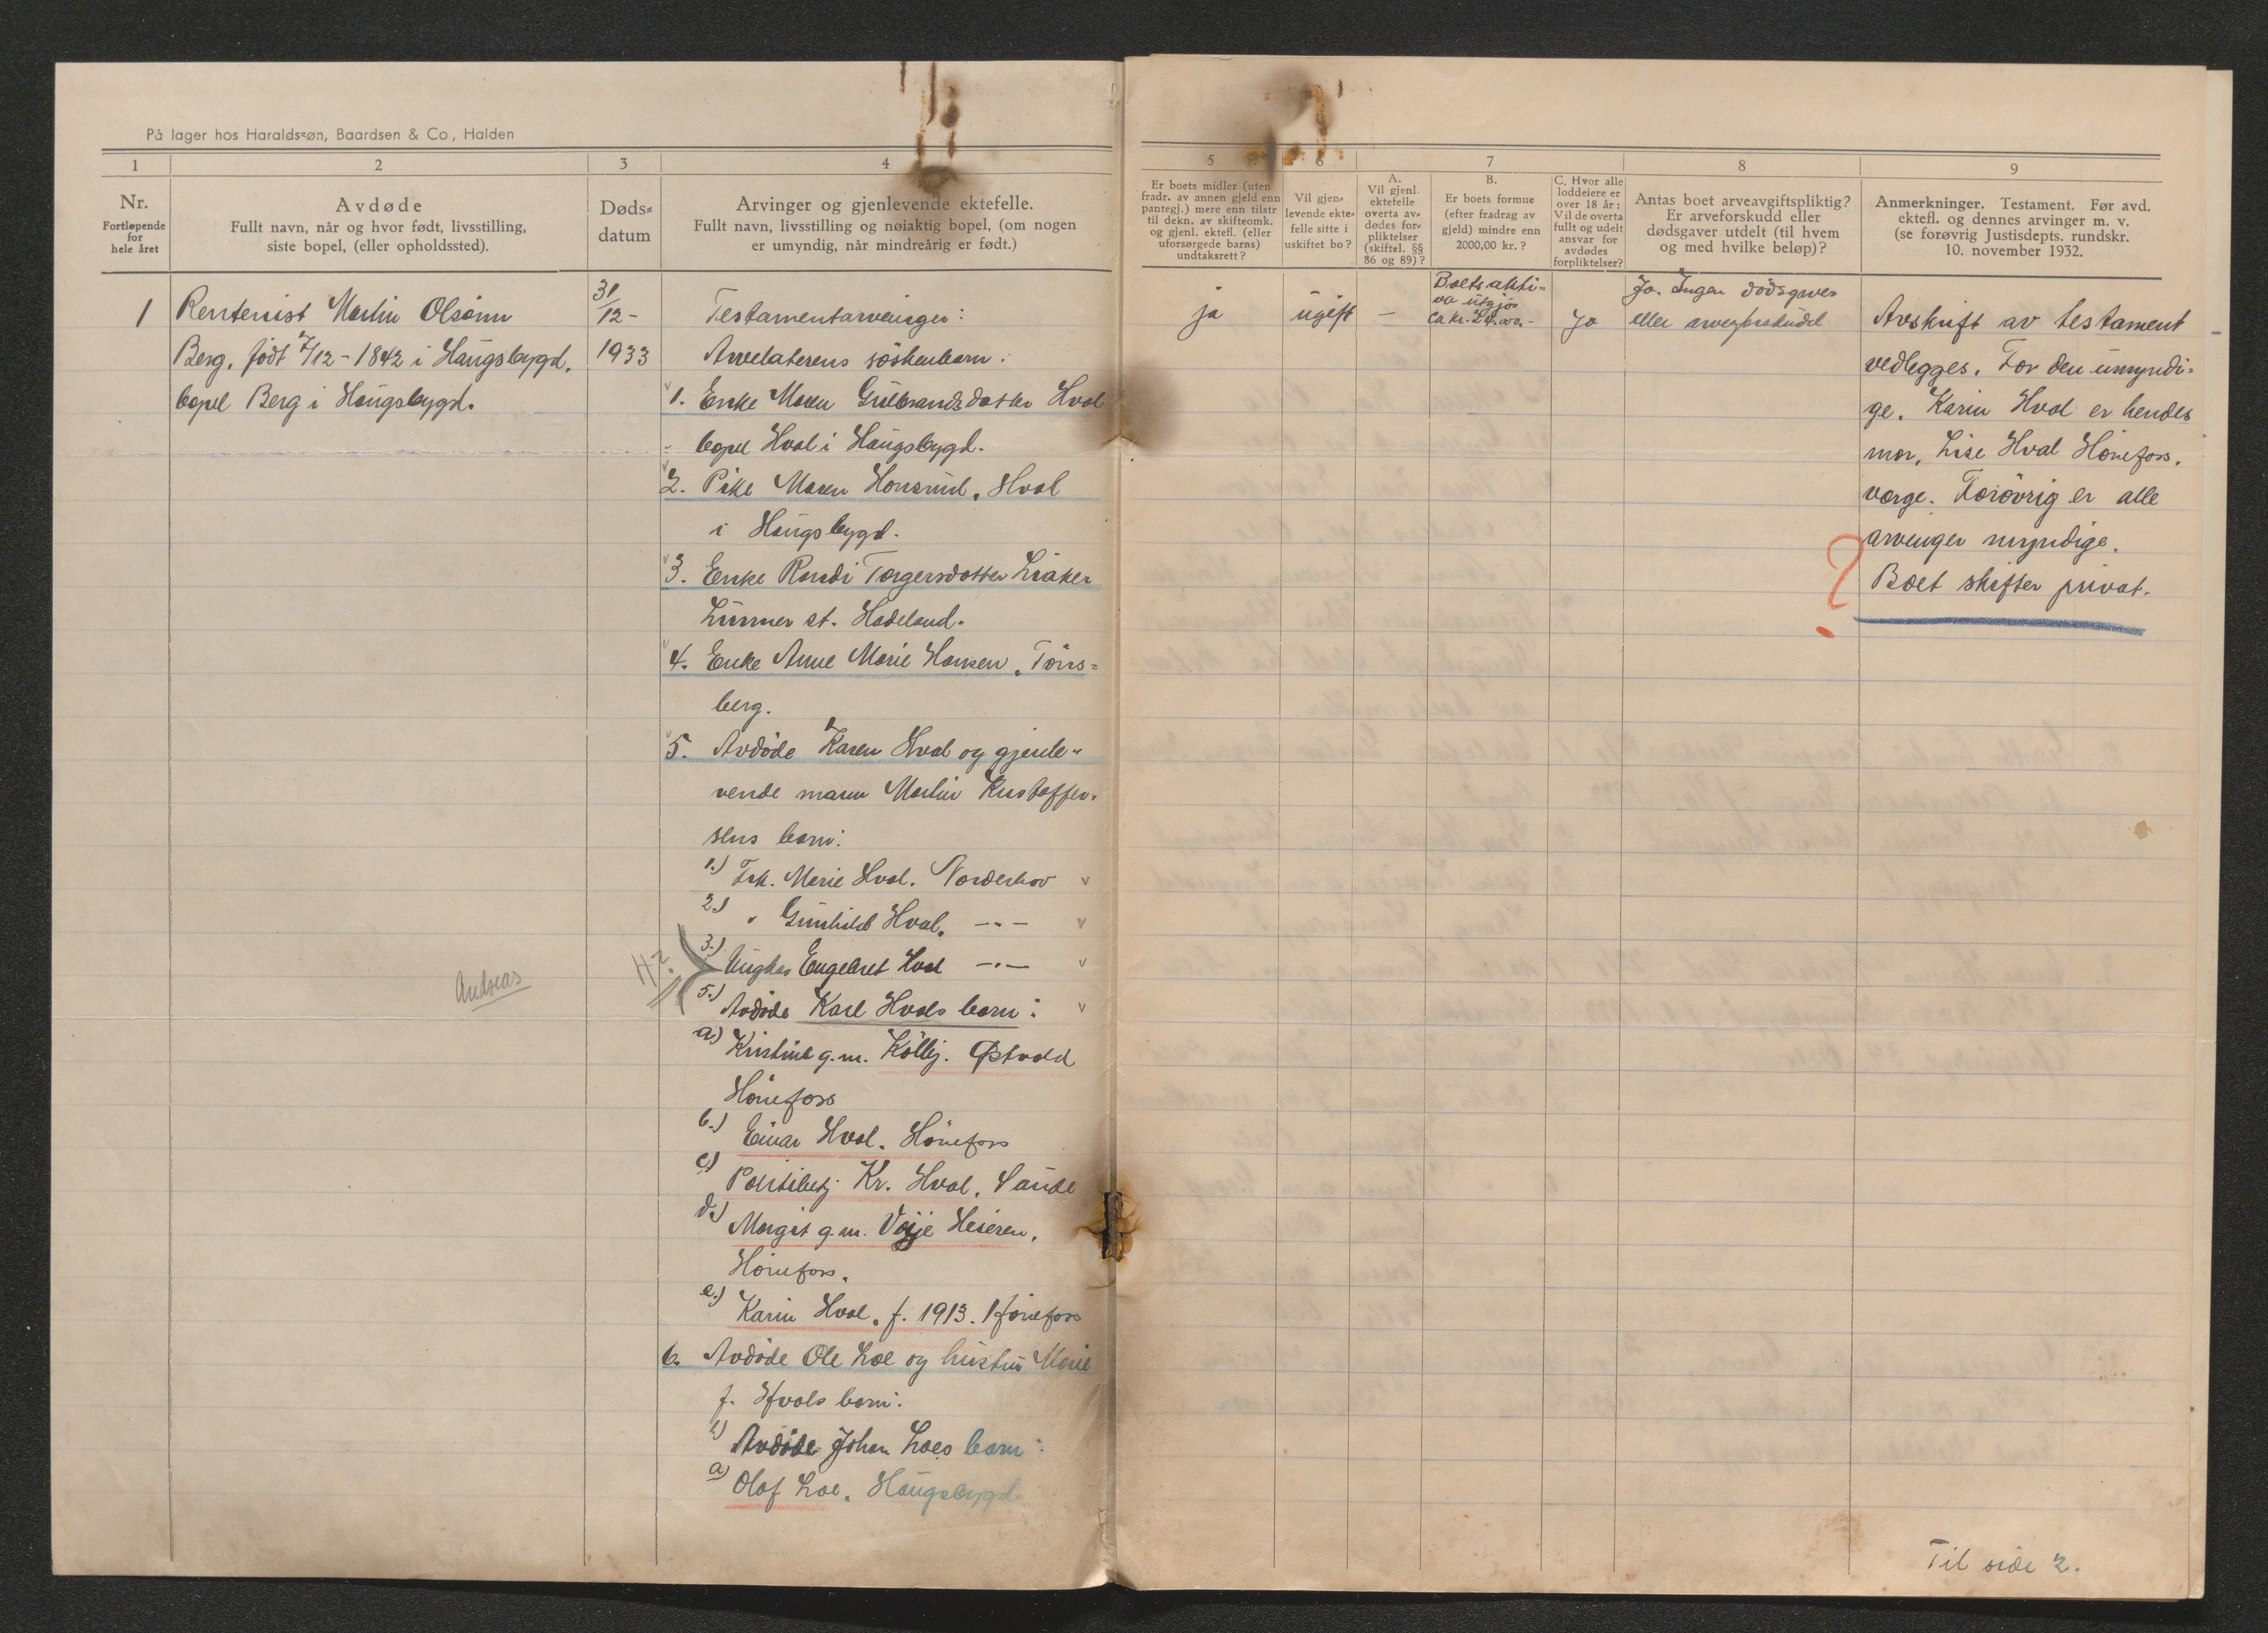 På lager hos Haraldssøn, Baardsen & Co, Halden
1
2
3
4
Nr.
Fortløpende
for
hele året
Avdøde
Fullt navn, når og hvor født, livsstilling,
siste bopel, (eller opholdssted).
Døds-
datum
Arvinger og gjenlevende ektefelle.
Fullt navn, livsstilling og nøiaktig bopel, (om nogen
er umyndig, når mindreårig er født.)
1
Rentenist Martin Olsönn
Berg, födt 7/12 - 1842 i Haugsbygd,
bopel Berg i Haugsbygd.
31/12 -
1933
Testamentarvinger:
Arvelaterens söskenbarn:
1. Enke Maren Gulbrandsdatter Hval
bopel Hval i Haugsbygd.
2. Pike Maren Honsrud, Hval
i Haugsbygd.
3. Enke Randi Torgersdatter Liaker
Lunner st. Hadeland.
4. Enke Anne Marie Hansen, Töns=
berg.
5. Avdöde Karen Hval og gjenle-
vende mann Martin Kristoffer-
sens barn:
1.) Frk. Marie Hval. Norderhov
2.) " Gunhild Hval. -"-
3.) Ungkar Engebret Hval -"-
4?
5.) Avdöde Karl Hvals barn:
Andreas
a) Kristine g.m. Kölbj. Østvold
Hönefoss
b.) Einar Hval. Hönefoss
c) Politibetj. Kr. Hval, Sande
d.) Margit g.m. Heieren,
Hönefoss.
e.) Karin Hval, f. 1913. Hönefoss
6. Avdöde Ole Loe og hustru Marie
f. Hvals barn:
1) Avdöde Johan Loes barn:
a) Olaf Loe, Haugsbygd
5
6
7
8
9
Er boets midler (uten
fradr. av annen gjeld enn
pantegj.) mere enn tilstr
til dekn. av skifteomk.
og gjenl. ektefl. (eller
uforsørgede barns)
undtaksrett?
Vil gjen-
levende ekte-
felle sitte i
uskiftet bo?
A.
Vil gjenl.
ektefelle
overta av-
dødes for-
pliktelser
(skiftel. §§
86 og 89)?
B.
Er boets formue
(efter fradrag av
gjeld) mindre enn
2000,00 kr.?
C. Hvor alle
loddeiere er
over 18 år:
Vil de overta
fullt og udelt
ansvar for
avdødes
forpliktelser?
Antas boet arveavgiftspliktig?
Er arveforskudd eller
dødsgaver utdelt (til hvem
og med hvilke beløp)?
Anmerkninger. Testament. Før avd.
ektefl. og dennes arvinger m. v.
(se forøvrig Justisdepts. rundskr.
10. november 1932.
ja
ugift
—
Boets akti=
va utgjör
ca kr. 24.000.-
Ja
Ja. Ingen dödsgaver
eller arveforskudd
Avskrift av testament
vedlegges. For den umyndi=
ge, Karin Hval er hendes
mor, Lise Hval Hönefoss,
verge. Forövrig er alle
arvinger myndige.
Boet skifter privat.
?
Til side 2.